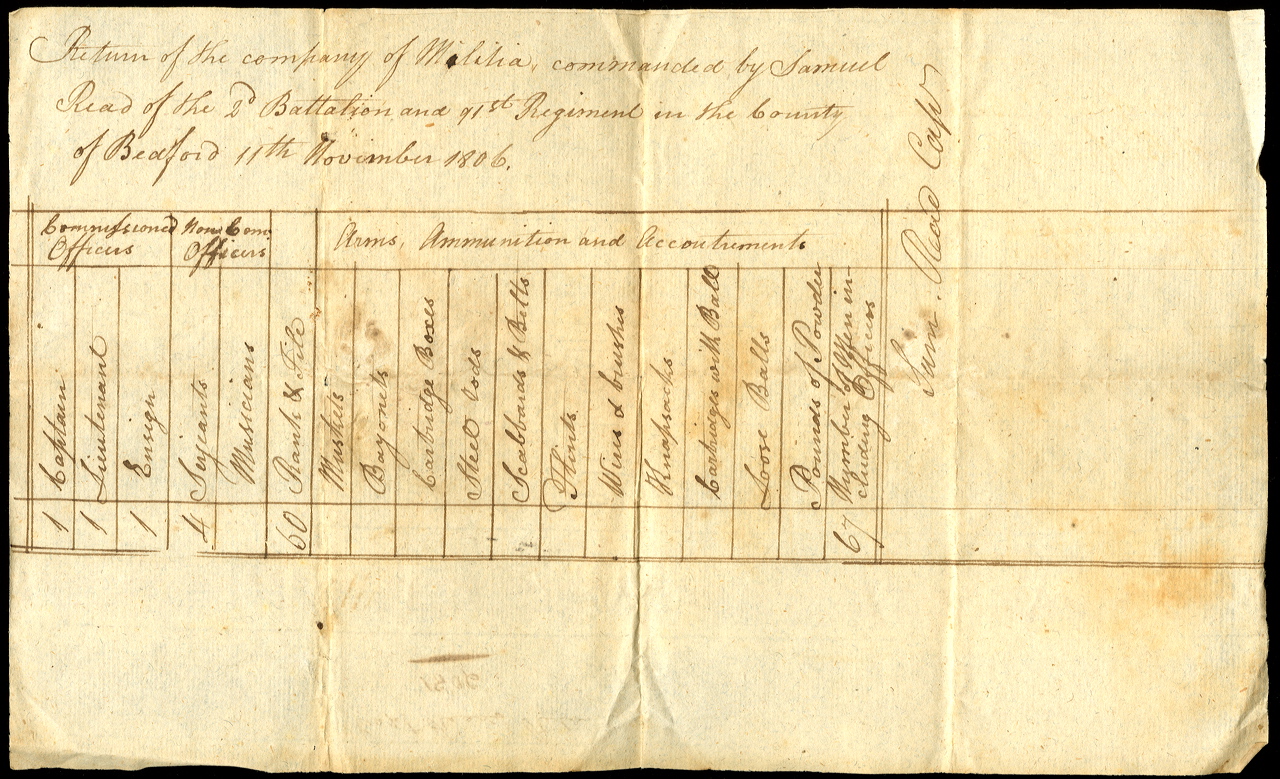 Return of the company of Militia, commanded by Samuel
Read of the 2d Battalion and 91st Regiment in the County
of Bedford 11th November 1806.
Commissioned Officers
Non Com Officers
Arms, Ammunition and Accoutrements
Captain
Lieutenant
Ensign
Serjeants
Musicians
Rank & File
Muskets
Bayonets
Cartridge Boxes
Steel rods
Scabbards & Belts
Flints
Wires & brushes
Knapsacks
Cartridges with Ball
Loose Balls
Pounds of Powder
Number of Men in-
cluding Officers
1
1
1
4
60
67
Sam. Read Capt